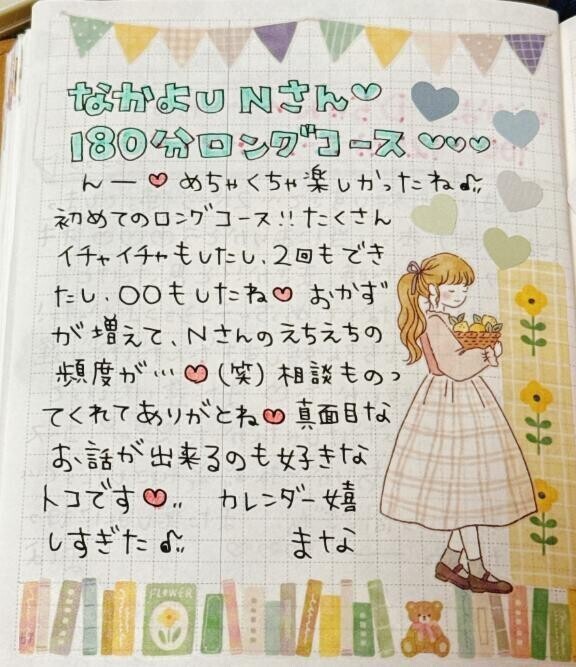 なかよし Nさん♡
180分ロングコース♡♡♡
んー♥めちゃくちゃ楽しかったね♪
初めてのロングコース!!たくさん
イチャイチャもしたし、2回もでき
たし、〇〇もしたね♥おかず
が増えて、Nさんのえちえちの
頻度が…♥(笑)相談ものっ
てくれてありがとね♥真面目な
お話が出来るのも好きな
トコです♥.. カレンダー嬉
しすぎた♪ まな
FLOWER